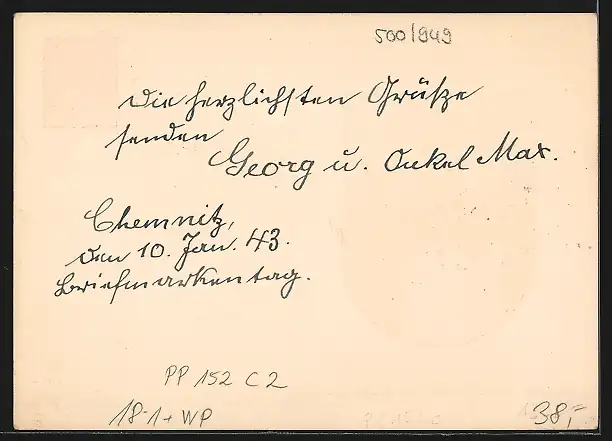 500/949
Die herzlichsten Grüße
senden
Georg u. Onkel Max.
Chemnitz,
den 10. Jan. 43.
Briefmarkentag.
PP 152 C 2
18-1+ WP
38,-